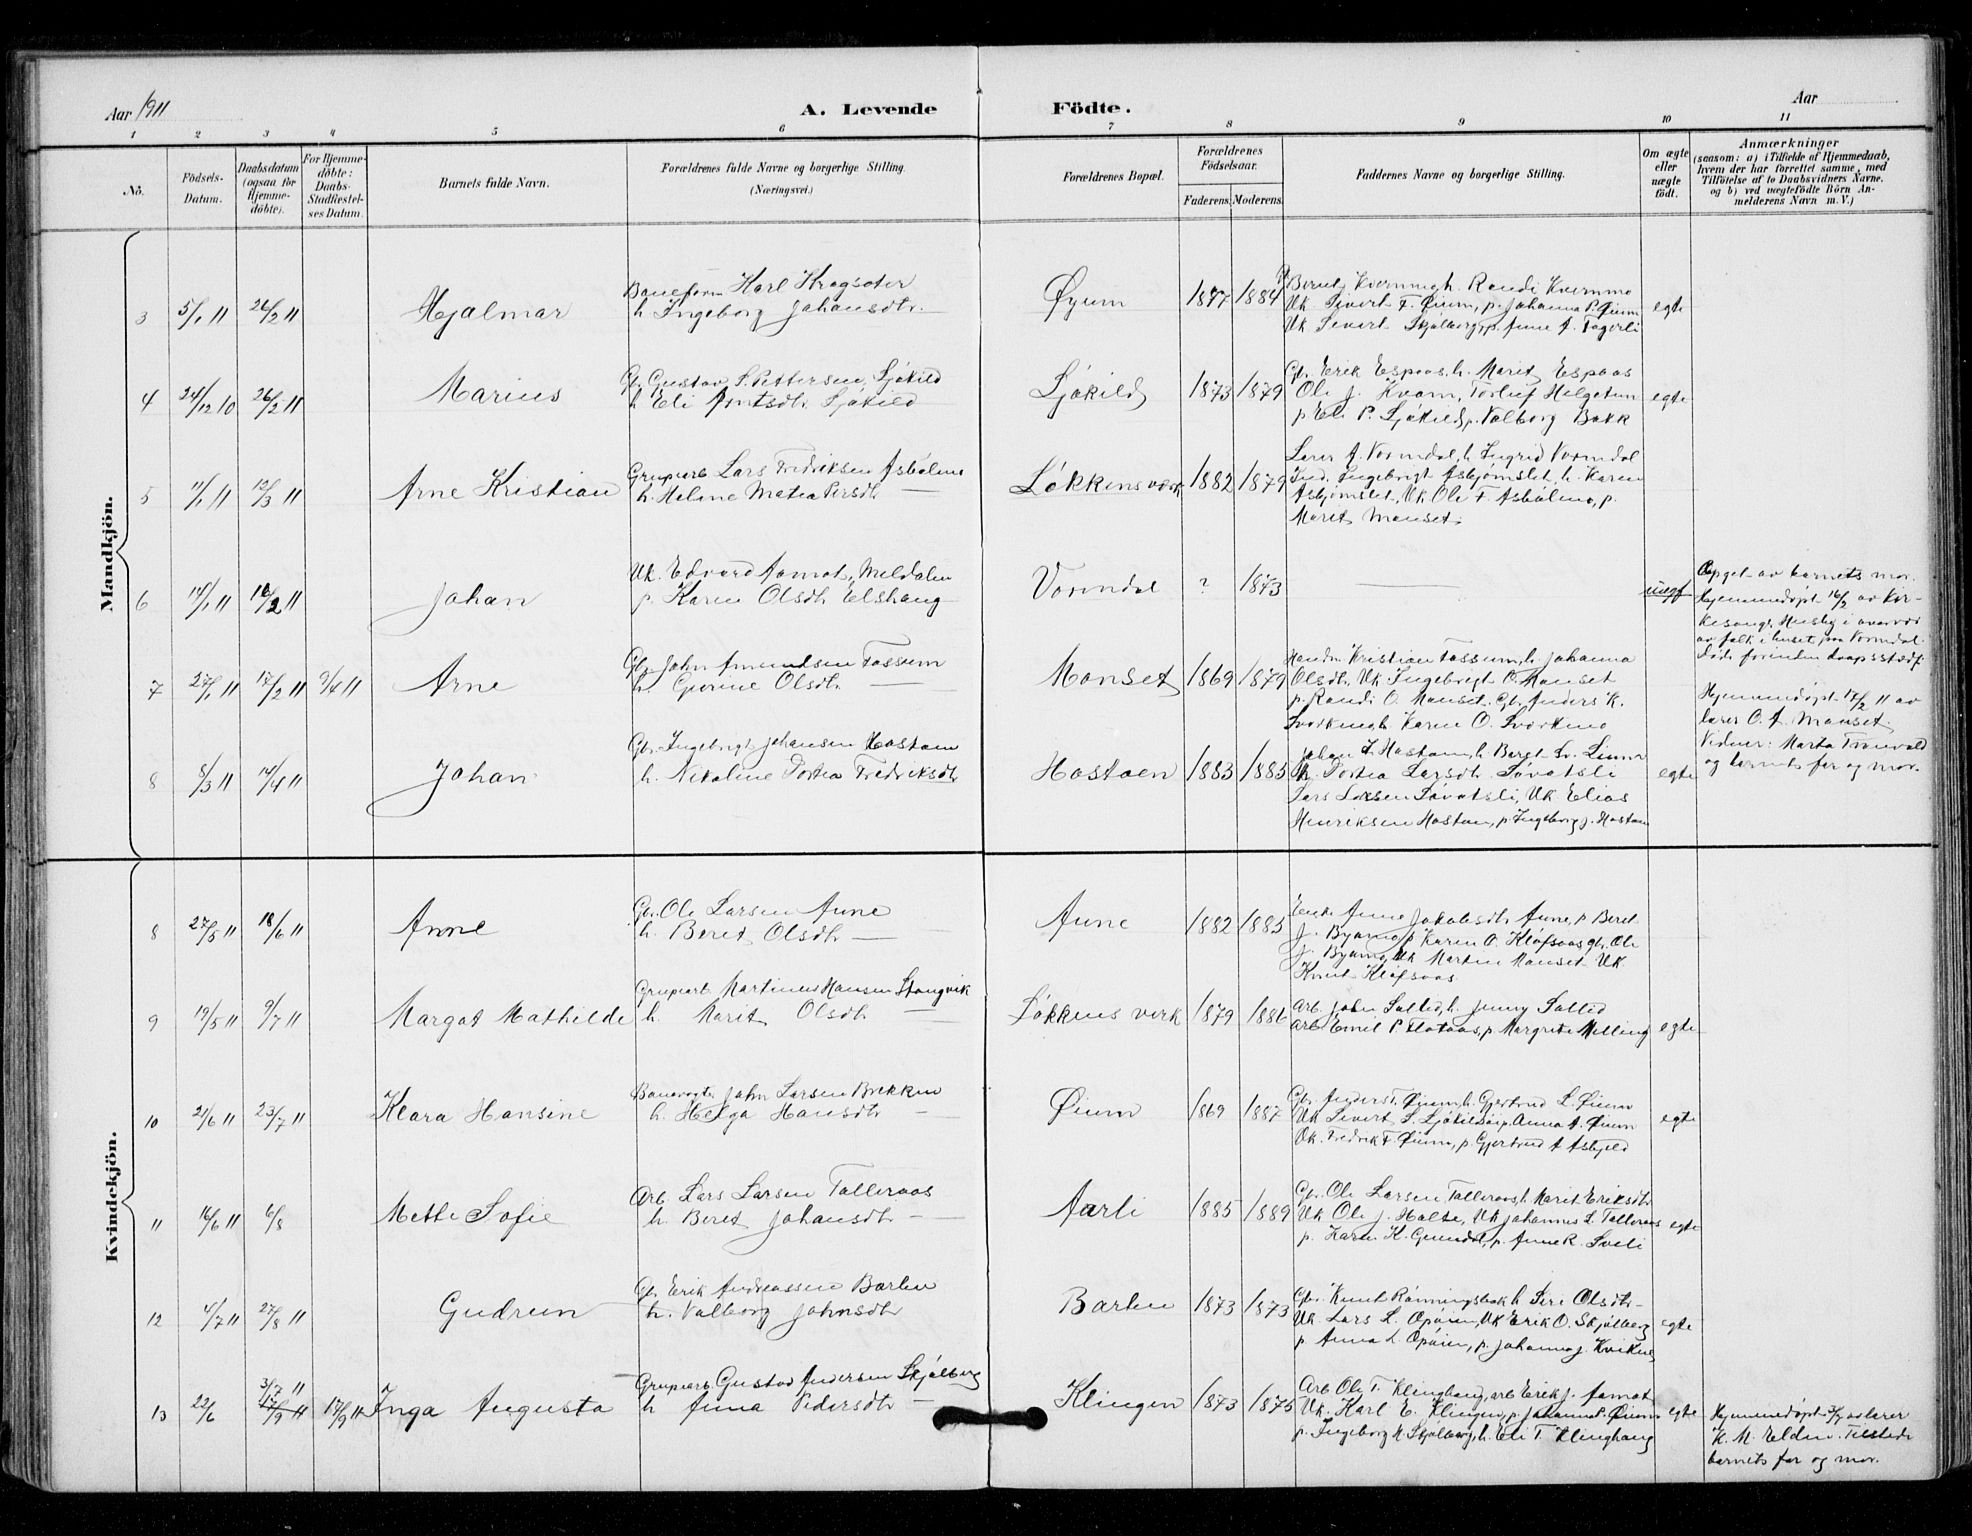 Aar 1911
A. Levende Födte.
Aar
1 2 3 4 5 6 7 8 9 10 11
No.
Födsels-Datum.
Daabsdatum (ogsaa for Hjemme-döbte).
For Hjemme-döbte: Daabs-Stadfæstel-ses Datum.
Barnets fulde Navn.
Forældrenes fulde Navne og borgerlige Stilling. (Næringsvei.)
Forældrenes Bopæl.
Forældrenes Födselsaar.
Faderens. Moderens.
Faddernes Navne og borgerlige Stilling.
Om ægte eller uægte födt.
Anmærkninger
(saasom: a) i Tilfælde af Hjemmedaab, hvem der har forrettet samme, med Tilföielse af to Daabsvidners Navne. og b) ved uægtefödte Börn An-melderens Navn m. V.)
Mandkjön.
3 5/1 11 26/2 11 Hjalmar
Baneform. Karl Kragsæter
h. Ingeborg Johansdtr.
Øyum 1877 1884
Berent Kvernmo, h. Randi Kvernmo
Uk Sivert F. Øium, p. Johanna P. Øium
Uk Sivert Skjølberg, p. Anne A. Fagerli
egte
4 24/12 10 26/2 11 Marius
Gb. Gustav S. Pettersen, Sjøkild
h. Eli Arntsdtr. Sjøkild
Sjøkild 1873 1879
Gb. Erik Espaas, h. Marit Espaas
Ole J. Kvam, Torleif Helgetun
p. Eli P. Sjøkild, p. Valborg Bakk
egte
5 11/1 11 12/3 11 Arne Kristian
Grubearb. Lars Fredriksen Asbølmo
h. Helene Matea Persdtr.
Løkkens verk 1882 1879
Lærer A. Vormdal, h. Ingrid Vormdal
Ingebrigt Asbjørnslet, h. Karen
Asbjørnslet, Uk Ole F. Asbølmo, p.
Marit Monset.
6 14/1 11 16/2 11 Johan
Uk. Edvard Aamot, Meldalen
p. Karen Olsdtr. Elshaug
Vormdal ? 1873
uegt
Opget av barnets mor.
Hjemmedøpt 16/2 av Kir-
kesang. Huseby i overvær
av folk i huset paa Vormdal.
Døde forinden daapsstadf.
7 27/1 11 17/2 11 9/4 11 Arne
Gb. John Amundsen Fossum
h. Gurine Olsdtr.
Monset 1869 1879
Handm. Kristian Fossum, h. Johanna
Olsdtr. Uk Ingebrigt O. Monset
p. Randi O. Monset. Gb. Anders K.
Svorkmo, h. Karen O. Svorkmo
Hjemmedøpt 17/2 11 av
lærer O. A. Monset.
Vidner: Marta Tronvold
og barnets far og mor.
8 5/3 11 14/4 11 Johan
Gb. Ingebrigt Johansen Hostoen
h. Nikoline Dortea Fredriksdtr
Hostoen 1883 1885
Johan I. Hostoen, h. Beret
h. Dortea Larsdtr. Løvatsli
Lars Larsen Løvatsli, Uk Elias
Henriksen Hostoen, p. Ingeborg J. Hostoen
egte
Kvindekjön.
8 27/5 11 18/6 11 Anne
Gb. Ole Larsen Aune
h. Beret Olsdtr.
Aune 1882 1885
Enke Anne Jakobsdtr. Aune, p. Beret
J. Byamo, p. Karen O. Kløfsaas, gb. Ole
J. Byamo, Uk Martin Monset. Uk
Knut Kløfsaas
9 19/5 11 9/7 11 Margot Mathilde
Grubearb. Martinus Hansen Stangvik
h. Marit Olsdtr.
Løkkens verk 1879 1886
Arb. John Solled, h. Jenny Solled
Arb Emil P. Flataas, p. Margrete Melling
egte
10 21/6 11 23/7 11 Klara Hansine
Banevogter John Larsen Brekken
h. Helga Hansdtr
Øium 1869 1887
Gb. Anders T. Øium, h. Gjertrud L. Øium
Uk Sivert S. Sjøkild, p. Anna A. Øium
Uk. Fredrik F. Øium, p. Gjertrud A. Asbjeld
egte
11 16/6 11 6/8 Mette Sofie
Arb. Lars Larsen Talleraas
h. Beret Johansdtr
Aarli 1885 1889
Gb. Ole Larsen Talleraas, h. Marit Eriksdtr
Uk Ole J. Holte, Uk Johannes L. Talleraas
p. Karen K. Grundal, p. Anne R. Sveli
egte
12 4/7 11 27/8 11 Gudrun
Gb. Erik Andreassen Barlin
h. Valborg Johnsdtr
Barlin 1873 1873
Gb. Knut Rønningsbak, h. Siri Olsdtr.
Uk Lars L. Opøien, Uk Erik O. Skjølberg
p. Anna L. Opøien, p. Johanna J. Kvikne
egte
13 22/6 3/7 11 17/9 11 17/9 11 Inga Augusta
Grubearb. Gustav Andersen Skjølberg
h. Anna Pedersdtr
Klingen 1873 1875
Arb. Ole T. Klinghaug, arb Erik J. Aamot
Uk. Karl E. Klingen, p. Johanna P. Øium
p. Ingeborg M. Skjølberg, h. Eli T. Klinghaug
egte
Hjemmedøpt 3/7 av lærer
K. M. Eldn. Tilstede
barnets far og mor.